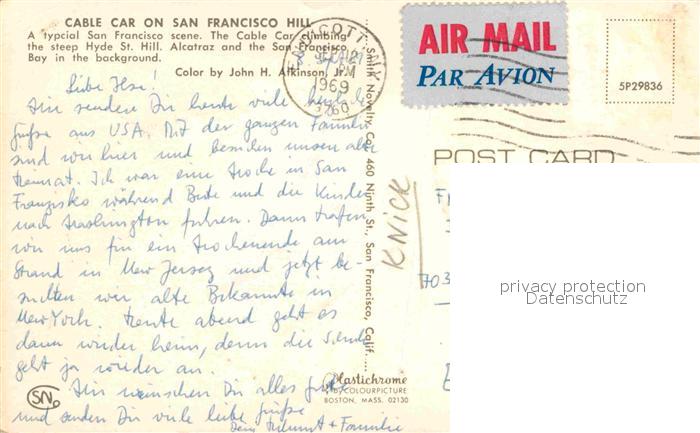 CABLE CAR ON SAN FRANCISCO HILL
A typcial San Francisco scene. The Cable Car climbing
the steep Hyde St. Hill. Alcatraz and the San Francisco
Bay in the background.
Color by John H. Atkinson, Jr.
AIR MAIL
PAR AVION
5P29836
PM
1969
POST CARD
Liebe Ilse!
Wir senden Dir heute viele herzliche
Grüsse aus USA. Mit der ganzen Familie
sind wir hier und besuchen unsere alte
Heimat. Ich war eine Woche in San
Franzisko während Beate und die Kinder
nach Washington fuhren. Dann trafen
wir uns für ein Wochenende am
Strand in New Jersey und jetzt be-
suchten wir alte Bekannte in
New York. Heute abend geht es
dann wieder heim, denn die Schule
geht ja wieder an.
Wir wünschen Dir alles gute
und senden Dir viele liebe Grüsse
Dein Helmut + Familie
Smith Novelty Co., 460 Ninth St., San Francisco, Calif.
KNICK
703
privacy protection
Datenschutz
Plastichrome
BY COLOURPICTURE
BOSTON, MASS. 02130
SN